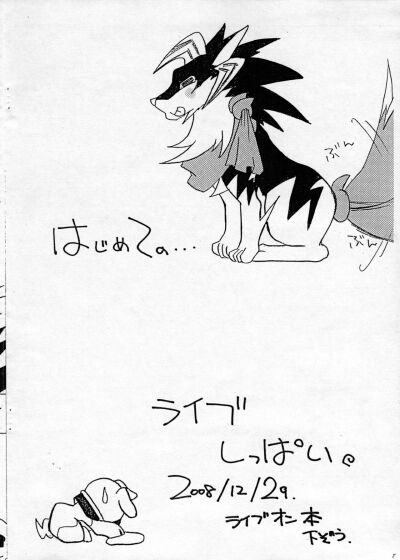 ぶん
ぶん
はじめての...
ライブ
しっぱい。
2008/12/29.
ライブオン本
下ぞう.